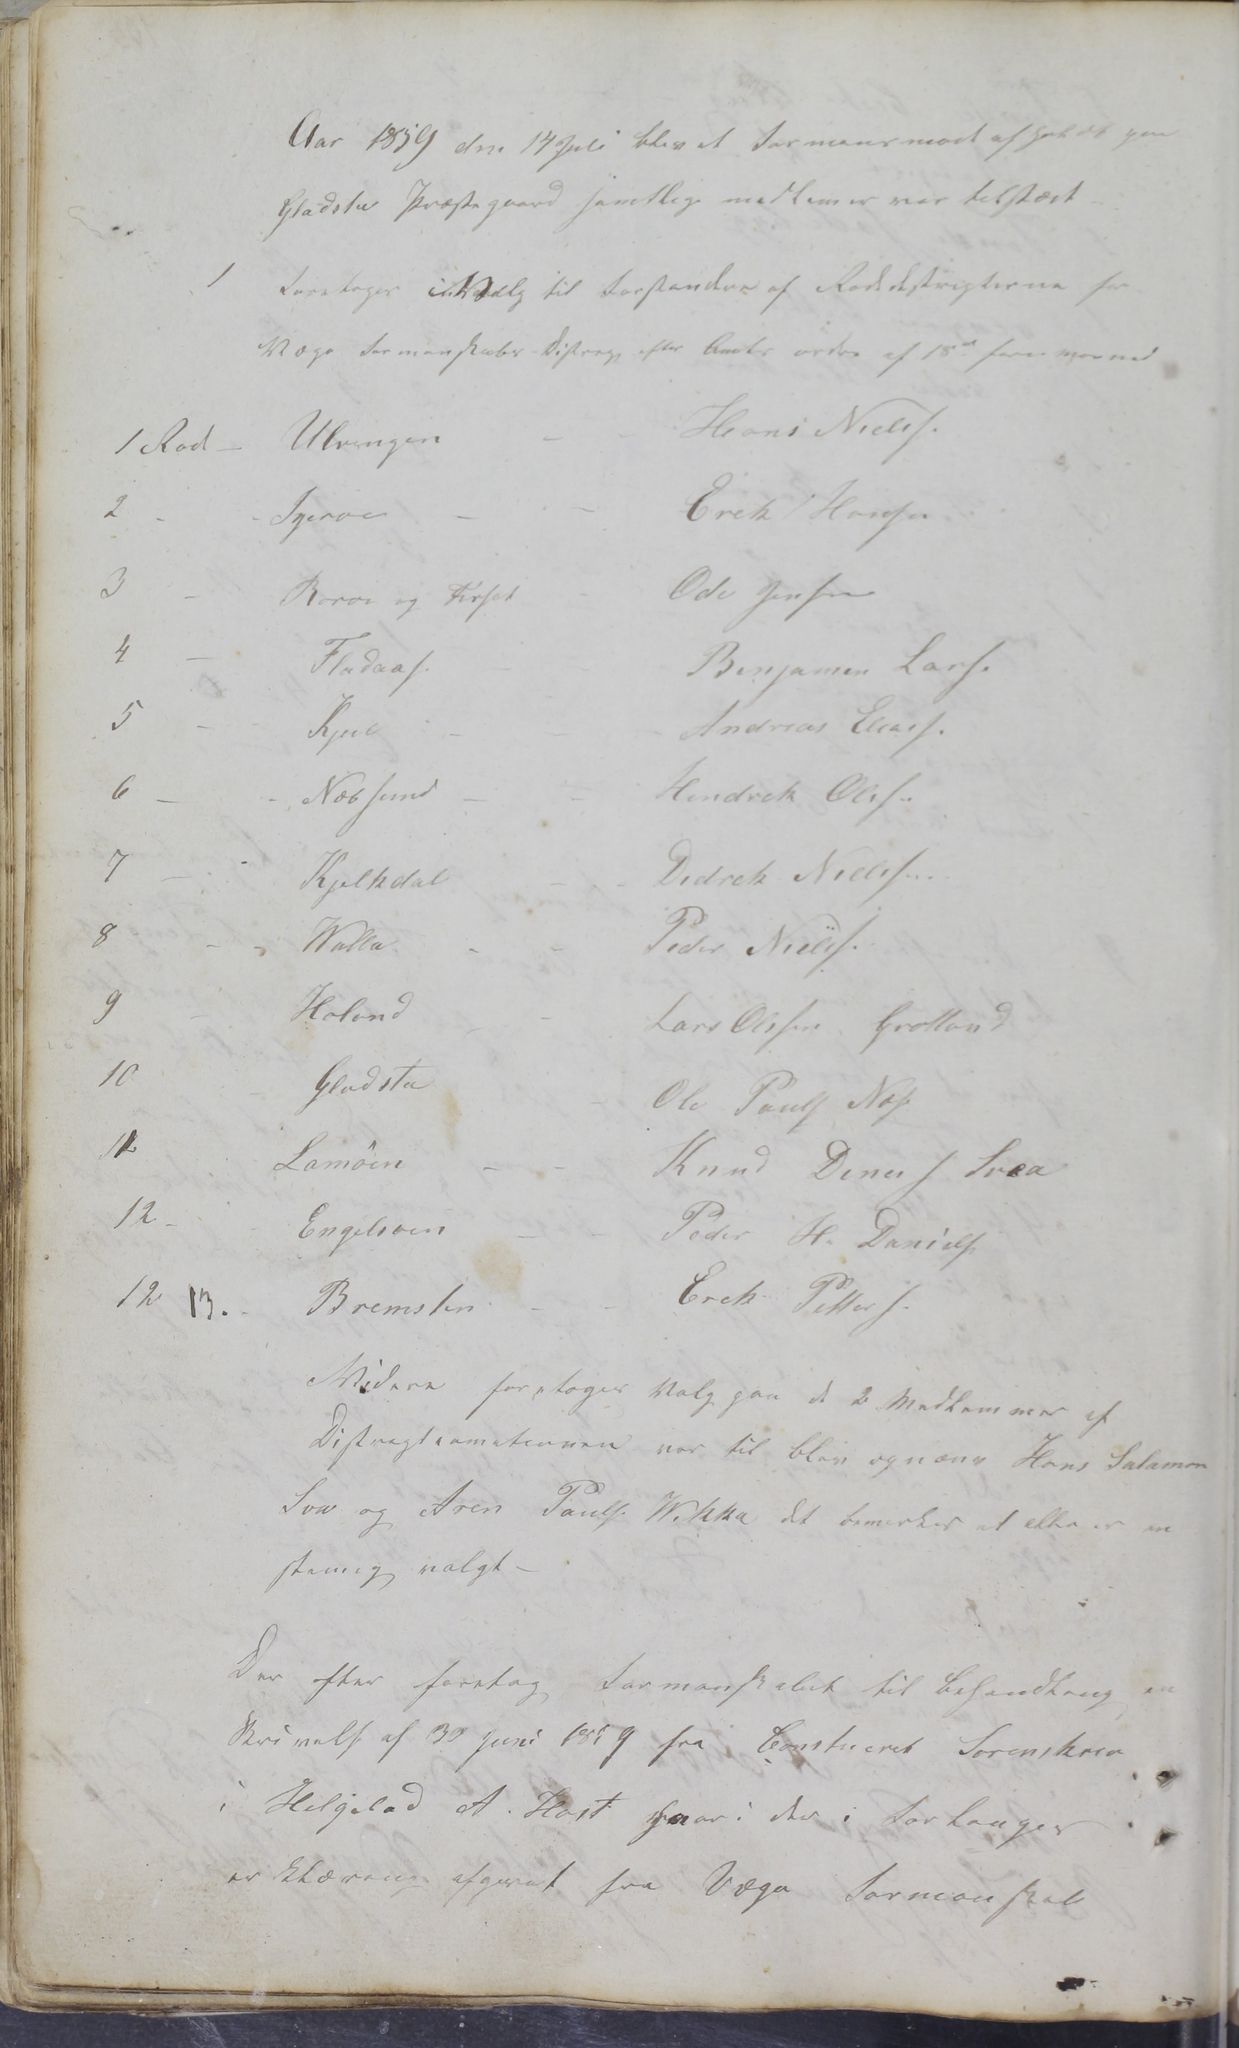 Aar 1859 den 14 Juli blev et Formansmøde afholdt paa
Gladstu Præstegaard samtlige medlemer var tilstæde
1 Foretoges Valg til Forstandere af Rodedistrigterne for
Væga Formanskabs Distrag efter Amts ordre af 18de forr. maaned
1 Rod - Ulvengen - - Hans Nielss.
2 - - Igerøe - - Erek Hansen
3 - Rorøe og Ferset - Ode Jensen
4 - Fladaas. - - Benjamin Larss.
5 - - Kjul - - - Andreas Eliass.
6 - - Næbsund - - Hendrek Olss.
7 - - Kjelkdal - - Dedrek Nielss.
8 - - Walla - - Peder Nielss.
9 - Holand - - Lars Olssen Grottand
10 - Gladsta - Ole Paulss Næss
11 Lamöen - - Knud Deness Svea
12 - Engelsøen - - Peder H. Daniels.
12 13. - Bremsten - - Erek Petters.
Videre foretoges Valg paa de 2 Medlemmer af
Distragtcometeerne vor til blev ognænt Hans Salamon
Sva og Aren Paulss. Wikka det bemerkes at alle er en
stemeg valgt -
Der efter foretog Formanskabet til behandleng en
Skrivelse af 30 Juni 1859 fra Constueret Sorenskrev
i Helgelad A. Hast hvori der i Forlanges
erklæreng afgevet fra Væga Formanskab